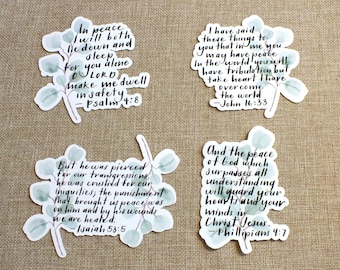 In peace
I will both
lie down and
sleep
for you alone
O LORD
make me dwell
in safety
- Psalm 4:8
I have said
these things to
you that in me you
may have peace
In the world you will
have tribulation but
take heart I have
overcome
the world
- John 16:33
But he was pierced
for our transgressions,
he was crushed for our
iniquities; the punishment
that brought us peace was
on him and by his wounds
we are healed.
- Isaiah 53:5
And the peace
of God which
surpasses all
understanding
will guard your
hearts and your
minds in
Christ Jesus
- Phillipians 4:7